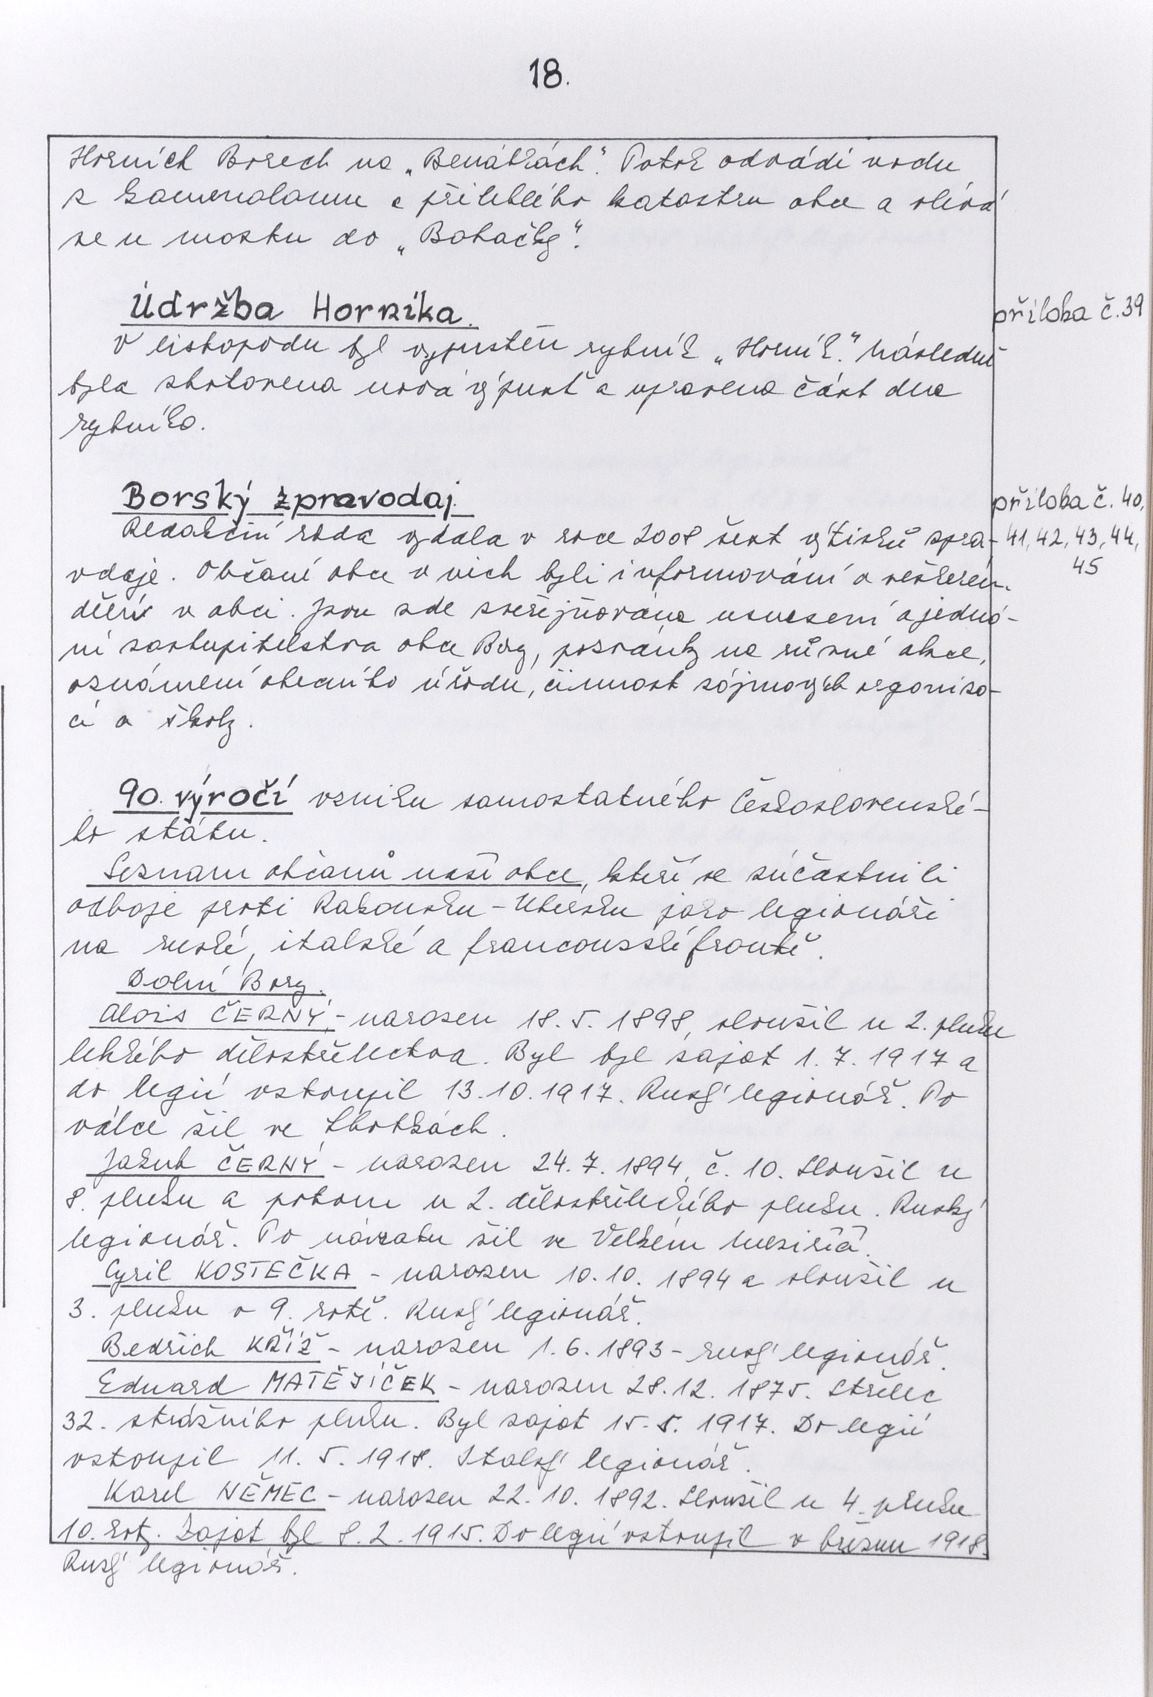 18.
Horních Borech na „Benátkách". Potok odvádí vodu
z kamenolomu a přilehlého katastru obce a vlévá
se u mostu do „Bohačky".
Údržba Horníka.
příloha č. 39
V listopadu byl vypuštěn rybník „Horník." Následně
byla zhotovena nová výpusť a upravena část dna
rybníka.
Borský zpravodaj.
příloha č. 40,
Redakční rada vydala v roce 2008 šest výtisků zpra-
41, 42, 43, 44,
vodaje. Občané obce v nich byli informováni o veškerém
45
dění v obci. Jsou zde zveřejňována usnesení a jedná-
ní zastupitelstva obce Bory, pozvánky na různé akce,
oznámení obecního úřadu, činnost zájmových organiza-
cí a školy.
90. výročí vzniku samostatného Československé-
ho státu.
Seznam občanů naší obce, kteří se zúčastnili
odboje proti Rakousku - Uhersku jako legionáři
na ruské, italské a francouzské frontě.
Dolní Bory.
Alois ČERNÝ - narozen 18. 5. 1898, sloužil u 2. pluku
lehkého dělostřelectva. Byl byl zajat 1. 7. 1917 a
do legií vstoupil 13. 10. 1917. Ruský legionář. Po
válce žil ve Lhotkách.
Jakub ČERNÝ - narozen 24. 7. 1894, č. 10. Sloužil u
8. pluku a potom u 2. dělostřeleckého pluku. Ruský
legionář. Po návratu žil ve Velkém Meziříčí.
Cyril KOSTEČKA - narozen 10. 10. 1894 a sloužil u
3. pluku v 9. rotě. Ruský legionář.
Bedřich KŘÍŽ - narozen 1. 6. 1893 - ruský legionář.
Eduard MATĚJÍČEK - narozen 28. 12. 1875. Střelec
32. strážního pluku. Byl zajat 15. 5. 1917. Do legií
vstoupil 11. 5. 1918. Italský legionář.
Karel NĚMEC - narozen 22. 10. 1892. Sloužil u 4. pluku
10. roty. Zajat byl 8. 2. 1915. Do legií vstoupil v březnu 1918.
Ruský legionář.